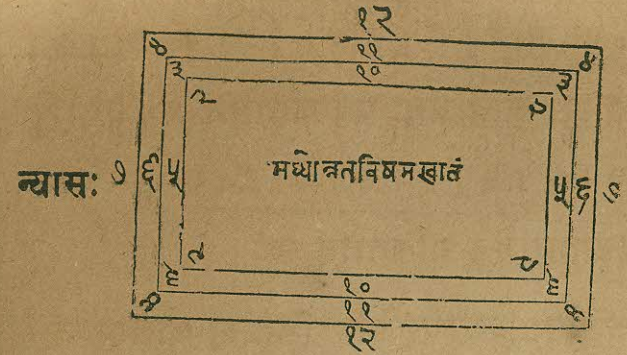 १२
११
१०
४ ४
३ ३
२ २
न्यासः ७ ६ ५ मध्योन्नतविषमखातं ५ ६ ७
२ २
३ ३
४ ४
१०
११
१२